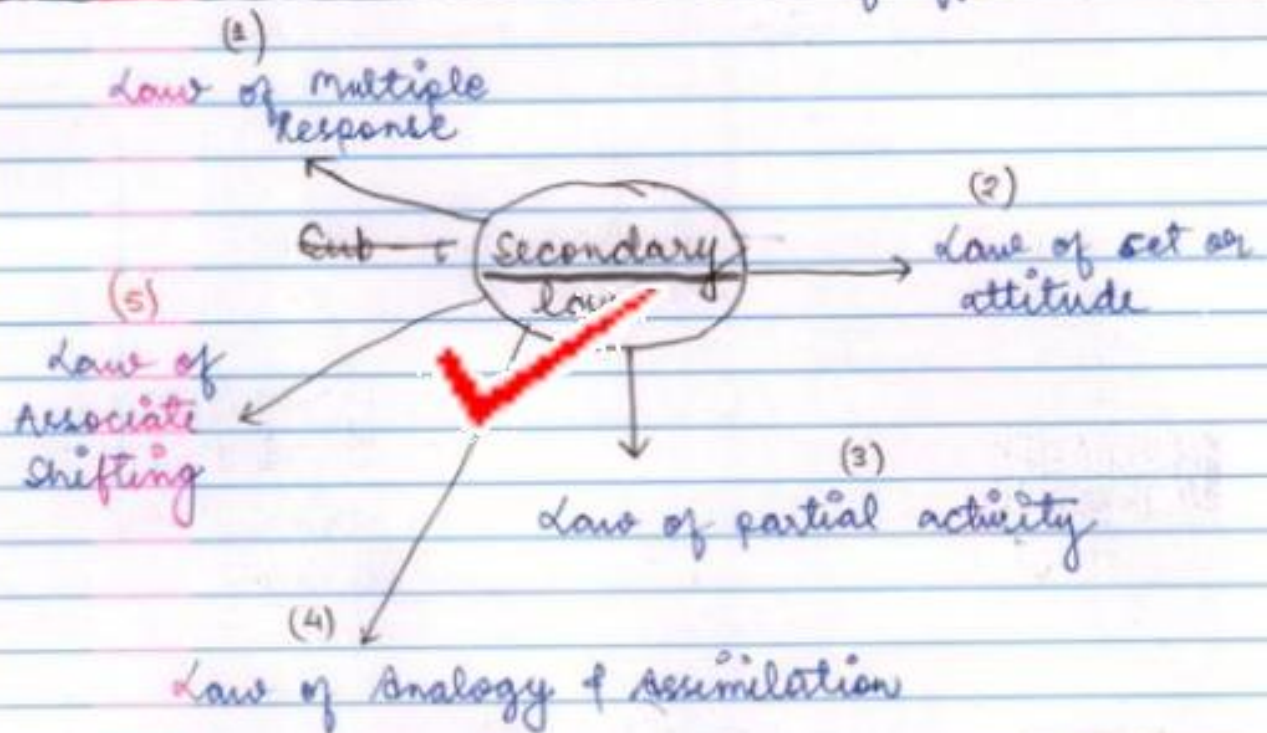 (1)
Law of Multiple
Response
(2)
Sub
Secondary
law
Law of set or
attitude
(5)
Law of
Associate
Shifting
(3)
Law of partial activity
(4)
Law of Analogy & Assimilation